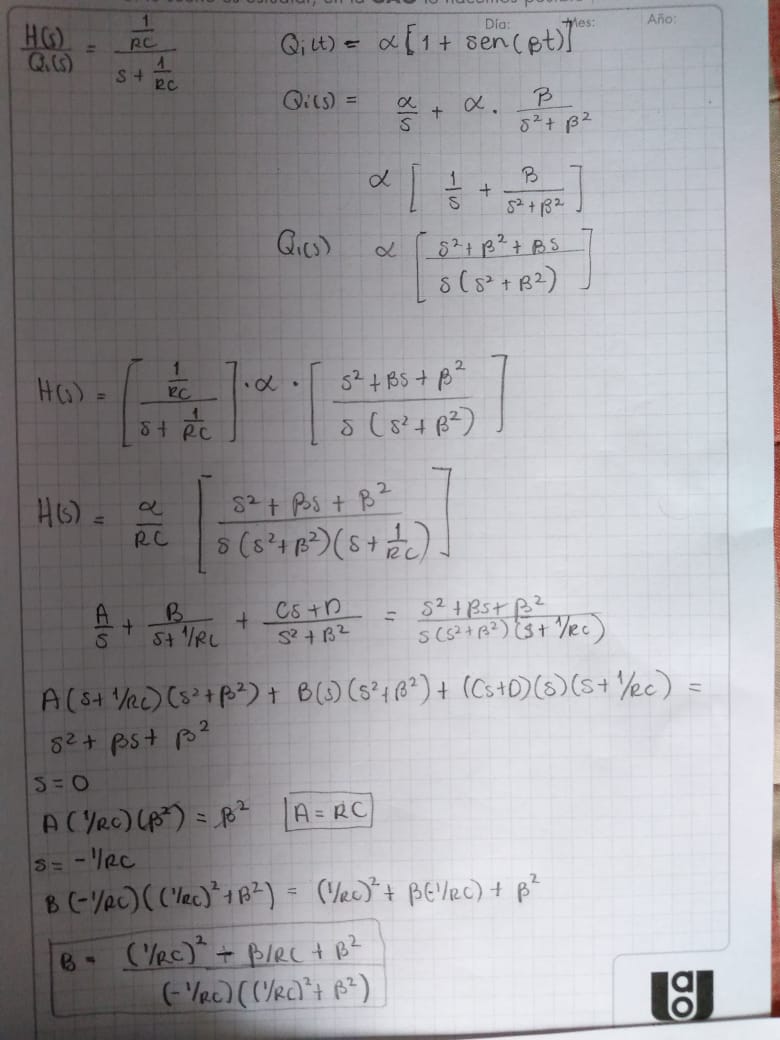 Día: Mes: Año:
H(s)/Qi(s) = (1/RC)/(s + 1/RC)
Qi(t) = α[1 + sen(βt)]
Qi(s) = α/s + α · β/(s² + β²)
α [1/s + β/(s² + β²)]
Qi(s) α [(s² + β² + βs)/(s(s² + β²))]
H(s) = [(1/RC)/(s + 1/RC)] · α · [(s² + βs + β²)/(s(s² + β²))]
H(s) = α/RC [(s² + βs + β²)/(s(s² + β²)(s + 1/RC))]
A/s + B/(s + 1/RC) + (Cs + D)/(s² + β²) = (s² + βs + β²)/(s(s² + β²)(s + 1/RC))
A(s + 1/RC)(s² + β²) + B(s)(s² + β²) + (Cs + D)(s)(s + 1/RC) =
s² + βs + β²
s = 0
A(1/RC)(β²) = β² A = RC
s = -1/RC
B(-1/RC)((1/RC)² + β²) = (1/RC)² + β(-1/RC) + β²
B = ((1/RC)² - β/RC + β²)/((-1/RC)((1/RC)² + β²))
uao